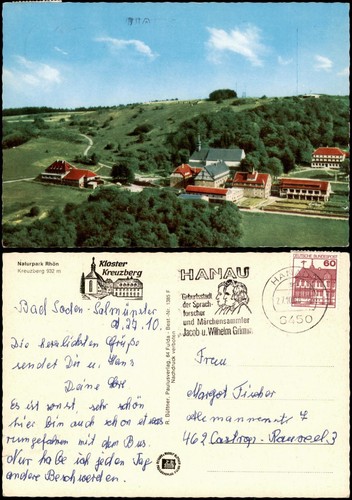 Naturpark Rhön
Kreuzberg 932 m
Kloster
Kreuzberg
HANAU
Geburtsstadt
der Sprach-
forscher
und Märchensammler
Jacob u. Wilhelm Grimm
HANAU
6450
DEUTSCHE BUNDESPOST
60
R. Büttner, Pauluverlag, 64 Fulda - Best.-Nr. 1385 F
Nachdruck verboten
Bad Soden-Salmünster
d. 27.10
Die herzlichsten Grüße
sendet Dir u. Hans
Deine
Es ist sonst, sehr schön
hier bin auch schon etwas
rumgefahren mit dem Bus.
Nur habe ich jeden Tag
andere Beschwerden.
Frau
Margot Fischer
Alemannenstr 7
462 Castrop-Rauxel 3